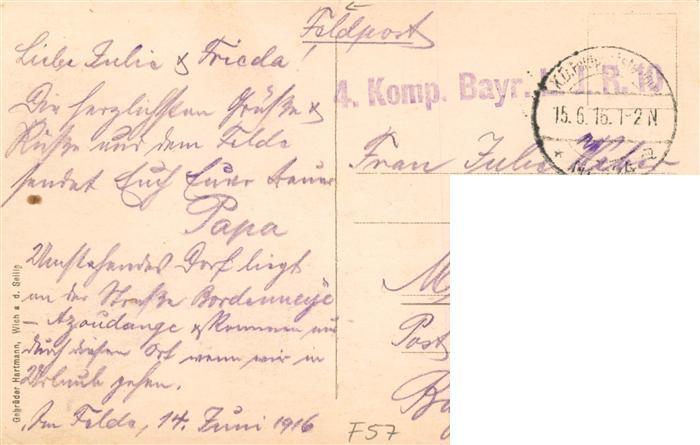 Feldpost
Liebe Julie & Frieda!
Die herzlichsten Grüße &
Küße aus dem Felde
sendet Euch Euer treuer
Papa
Umstehendes Dorf liegt
an der Straße
– Azoudange & kommen wir
durch diesen Ort wenn wir in
Urlaub gehen.
Im Felde, 14. Juni 1916
4. Komp. Bayr. L. I. R. 10
15.6.16.1-2N
Frau Julie
Post
F57
Gebrüder Hartmann, Wich a. d. Seille